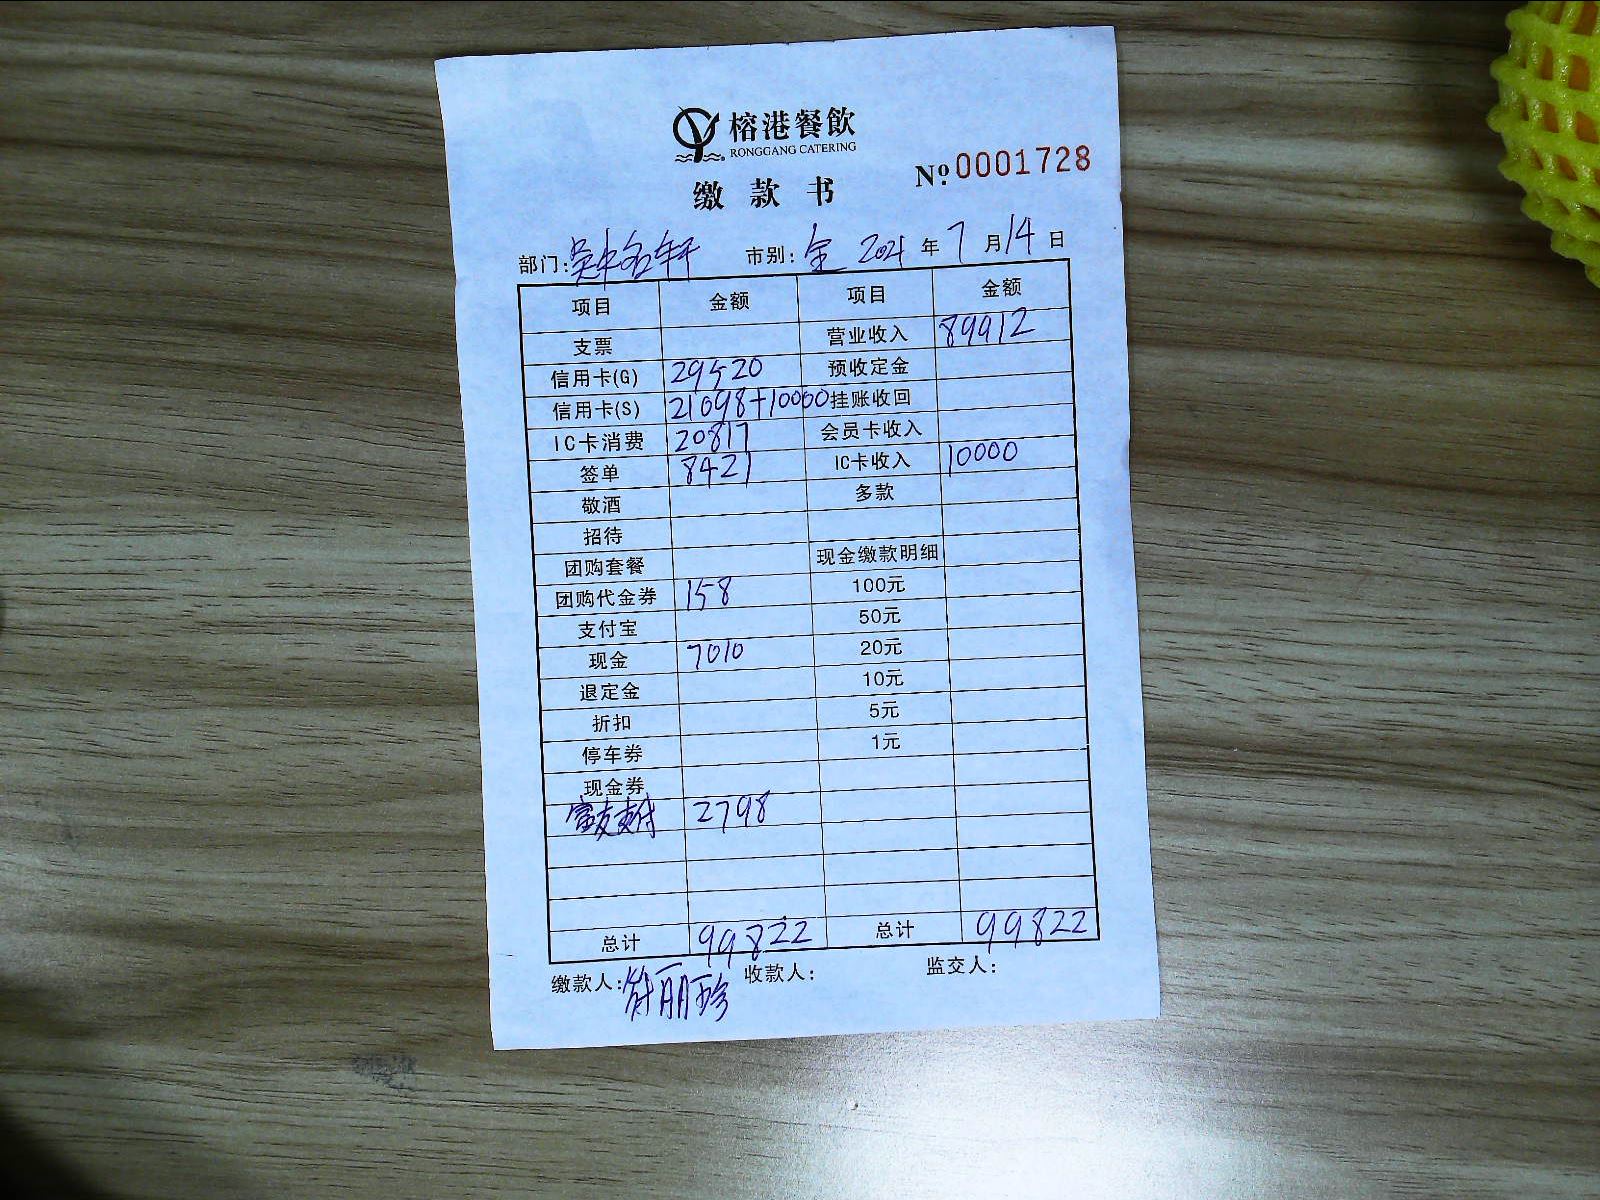 榕港餐飲
RONGGANG CATERING
缴款书 Nº 0001728
部门: 吴中名轩 市别: 全 2021 年 7 月 14 日
项目 金额 项目 金额
支票 营业收入 89912
信用卡(G) 29520 预收定金
信用卡(S) 21098+10000 挂账收回
IC卡消费 20817 会员卡收入
签单 8421 IC卡收入 10000
敬酒 多款
招待
团购套餐 现金缴款明细
团购代金券 158 100元
支付宝 50元
现金 7010 20元
退定金 10元
折扣 5元
停车券 1元
现金券
富友支付 2798
总计 99822 总计 99822
缴款人: 符丽珍 收款人: 监交人: